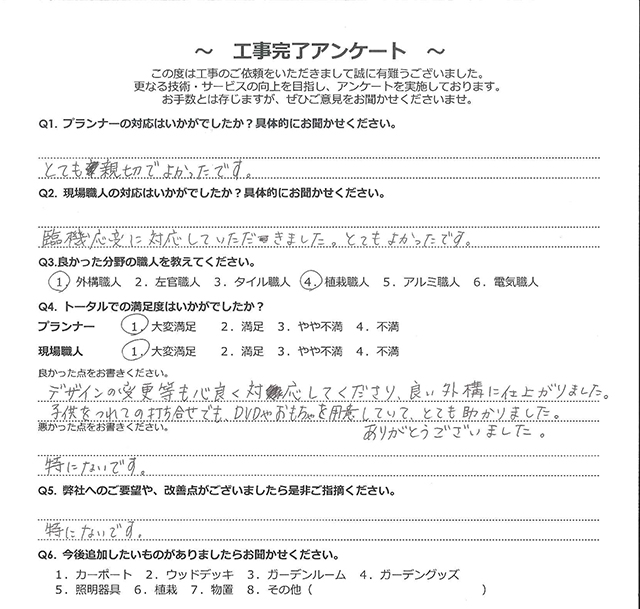 ～ 工事完了アンケート ～
この度は工事のご依頼をいただきまして誠に有難うございました。
更なる技術・サービスの向上を目指し、アンケートを実施しております。
お手数とは存じますが、ぜひご意見をお聞かせくださいませ。
Q1. プランナーの対応はいかがでしたか？具体的にお聞かせください。
とても親切でよかったです。
Q2. 現場職人の対応はいかがでしたか？具体的にお聞かせください。
臨機応変に対応していただきました。とてもよかったです。
Q3.良かった分野の職人を教えてください。
1．外構職人 2．左官職人 3．タイル職人 4．植栽職人 5．アルミ職人 6．電気職人
Q4. トータルでの満足度はいかがでしたか？
プランナー 1．大変満足 2．満足 3．やや不満 4．不満
現場職人 1．大変満足 2．満足 3．やや不満 4．不満
良かった点をお書きください。
デザインの変更等も心良く対応してくださり、良い外構に仕上がりました。
子供をつれての打ち合せでも、DVDやおもちゃを用意していて、とても助かりました。
ありがとうございました。
悪かった点をお書きください。
特にないです。
Q5. 弊社へのご要望や、改善点がございましたら是非ご指摘ください。
特にないです。
Q6. 今後追加したいものがありましたらお聞かせください。
1．カーポート 2．ウッドデッキ 3．ガーデンルーム 4．ガーデングッズ
5．照明器具 6．植栽 7．物置 8．その他（ ）